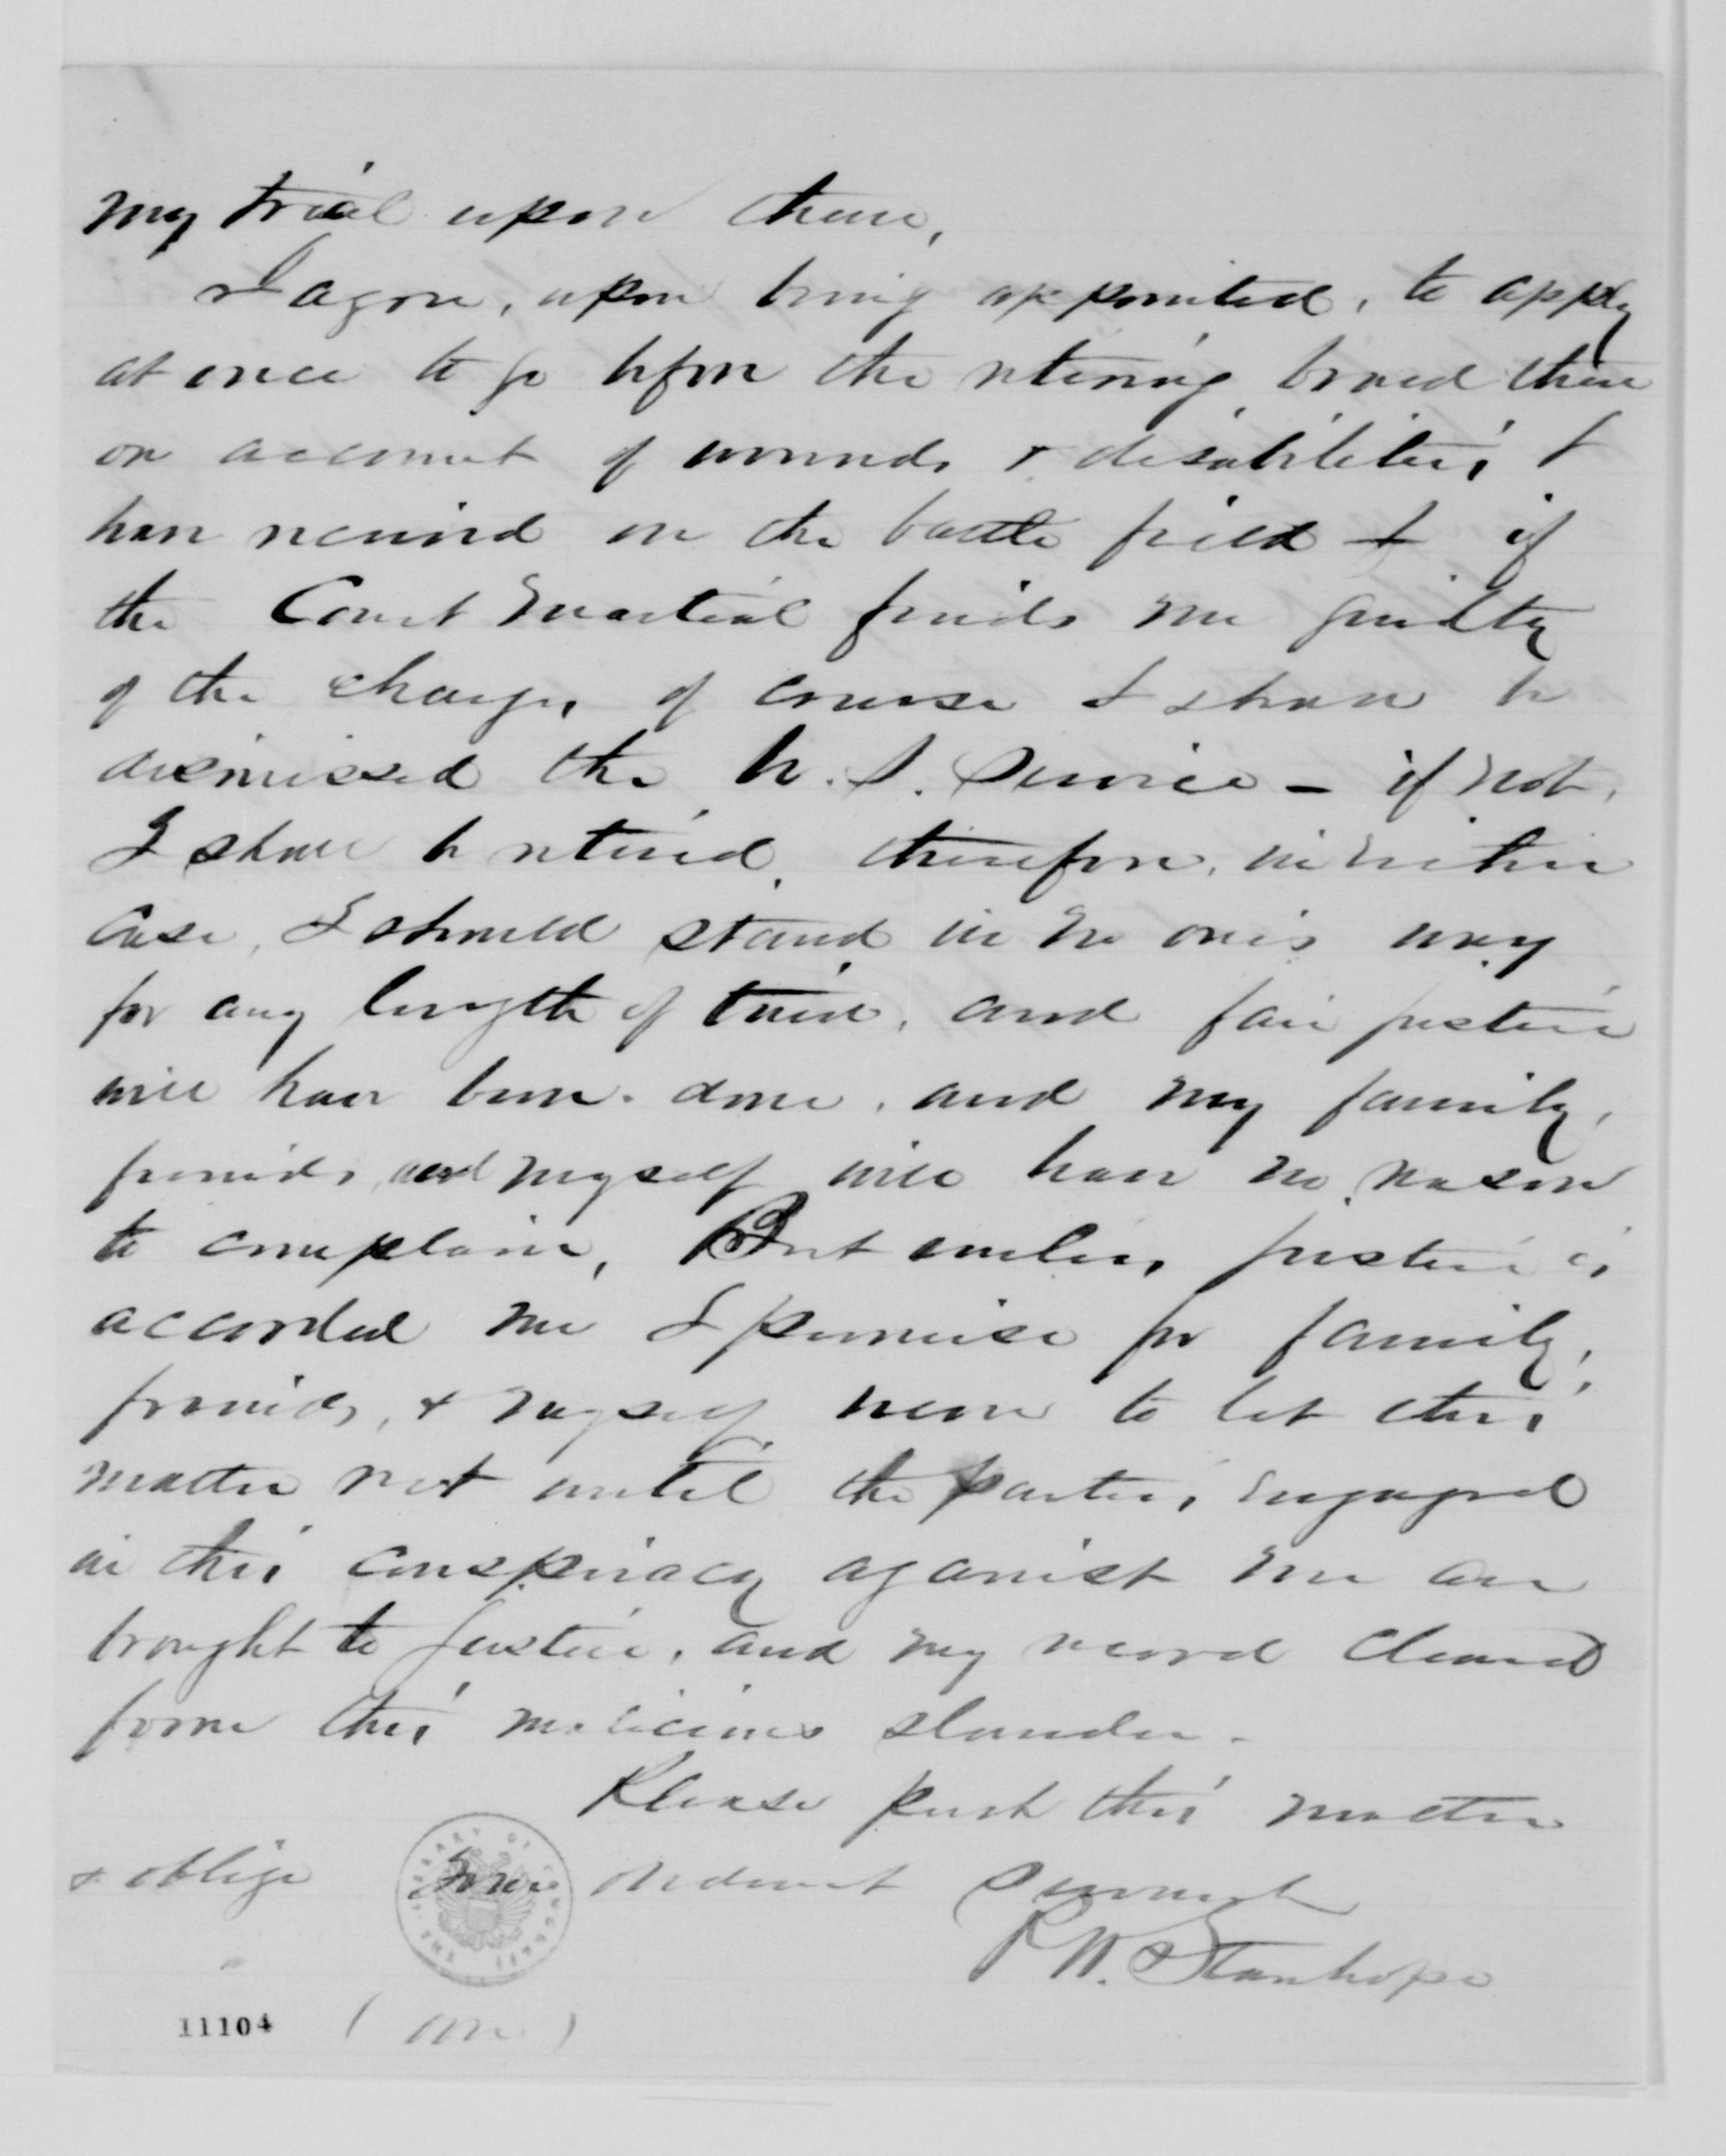 my trial upon them,
I agree, upon being appointed, to apply
at once to go before the retiring board there
on account of wounds & disabilities I
have received on the battle field & if
the Court Martial finds me guilty
of the charges of course I shall be
dismissed the U. S. Service - if not,
I shall be retired, therefore, in either
case, I should stand in no one's way
for any length of time, and fair justice
will have been done, and my family,
friends, and myself will have no reason
to complain, But unless justice is
accorded me I promise for family,
friends, & myself never to let this
matter rest until the parties engaged
in this conspiracy against me are
brought to justice, and my record cleared
from this malicious slander.
Please push this matter
& oblige Your obedient servant
P. W. Stanhope
11104 (over)